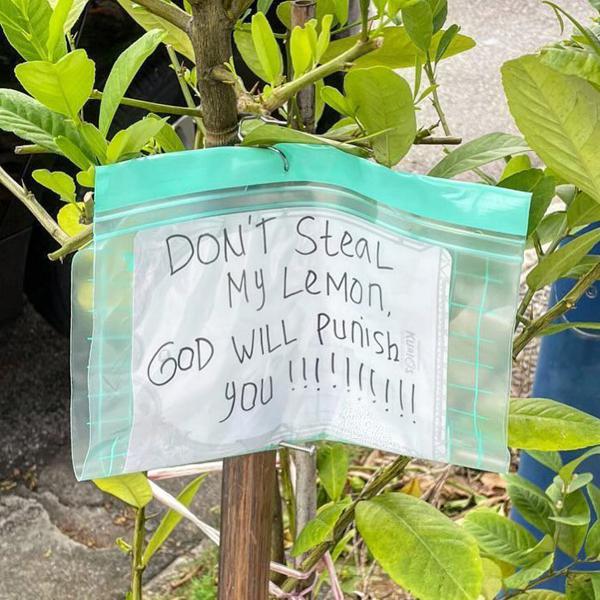 DON'T SteaL
My LeMon,
GOD WILL Punish
you !!!!!!!!!!